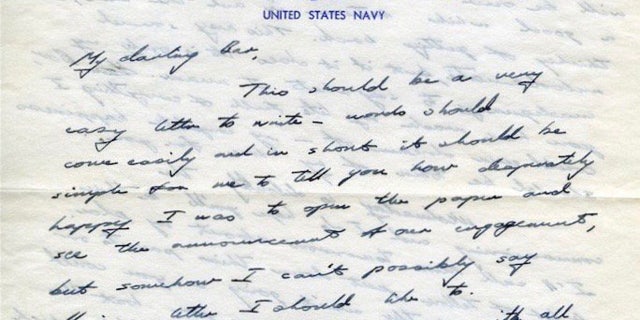 UNITED STATES NAVY
My darling Bar,
This should be a very
easy letter to write — words should
come easily and in short it should be
simple for me to tell you how desperately
happy I was to open the paper and
see the announcement of our engagement,
but somehow I can't possibly say
all in a letter I should like to.
with all